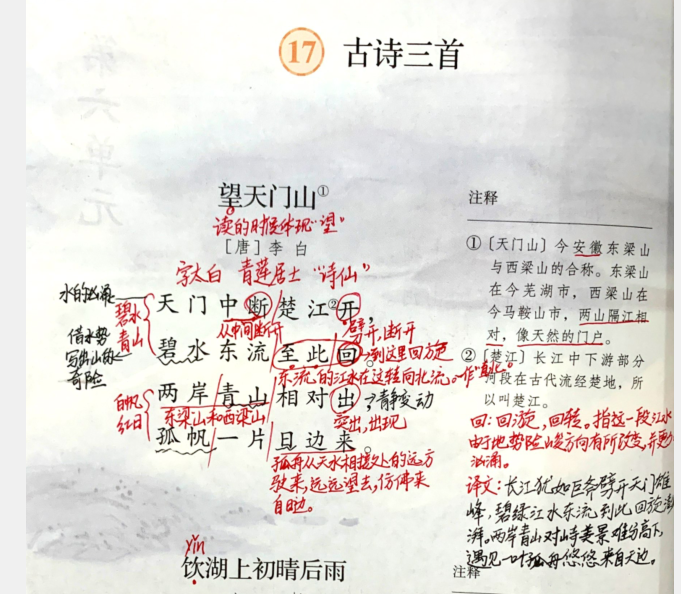 第六单元
17 古诗三首
望天门山①
读的时候体现“望”
[唐]李白
字太白 青莲居士 “诗仙”
水的汹涌
碧水
青山
天门中断楚江②开
从中间断开
劈开,断开
借水势
写出山的
奇险
碧水东流至此回。
到这里回旋
东流的江水在这转向北流。
白帆
红日
两岸青山相对出
静变动
东梁山和西梁山
突出,出现
孤帆一片日边来。
孤舟从天水相接处的远方
驶来,远远望去,仿佛来
自日边。
yǐn
饮湖上初晴后雨
注释
①〔天门山〕今安徽东梁山
与西梁山的合称。东梁山
在今芜湖市,西梁山在
今马鞍山市,两山隔江相
对,像天然的门户。
②〔楚江〕长江中下游部分
河段在古代流经楚地,所
以叫楚江。
回:回旋,回转。指这一段江水
由于地势险峻方向有所改变,并更加
汹涌。
译文:长江犹如巨斧劈开天门雄
峰,碧绿江水东流到此回旋澎
湃。两岸青山对峙美景难分高下,
遇见一叶孤舟悠悠来自天边。
注释